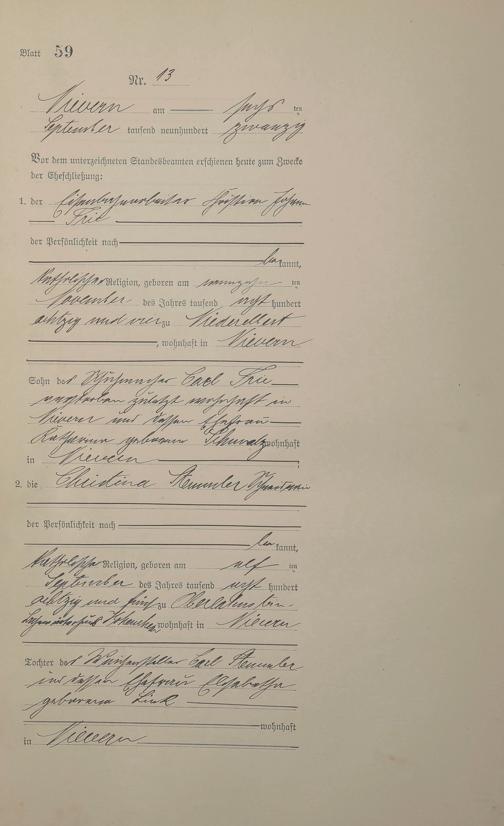 Blatt 59
Nr. 13
Nievern am sechs ten
September tausend neunhundert zwanzig
Vor dem unterzeichneten Standesbeamten erschienen heute zum Zwecke
der Eheschließung:
1. der Eisenbahnarbeiter Christian Johann
Frie
der Persönlichkeit nach
be kannt,
katholischer Religion, geboren am neunzehn ten
November des Jahres tausend acht hundert
achtzig und vier zu Niederelbert
, wohnhaft in Nievern
Sohn des Carl Frie
verstorben zuletzt wohnhaft in
Nievern und dessen Ehefrau
Katharina geborene Schwalz wohnhaft
in Nievern
2. die Christina Stemmler
der Persönlichkeit nach
be kannt,
katholische Religion, geboren am elf ten
September des Jahres tausend acht hundert
achtzig und fünf zu Oberlahnstein
wohnhaft in Nievern
Tochter des Weichenstellers Carl Stemmler
und dessen Ehefrau Elisabetha
geborene Link
wohnhaft
in Nievern